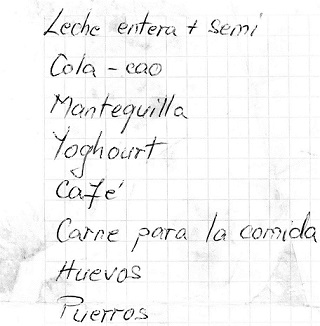 Leche entera + semi
Cola-cao
Mantequilla
Yoghourt
Café
Carne para la comida
Huevos
Puerros